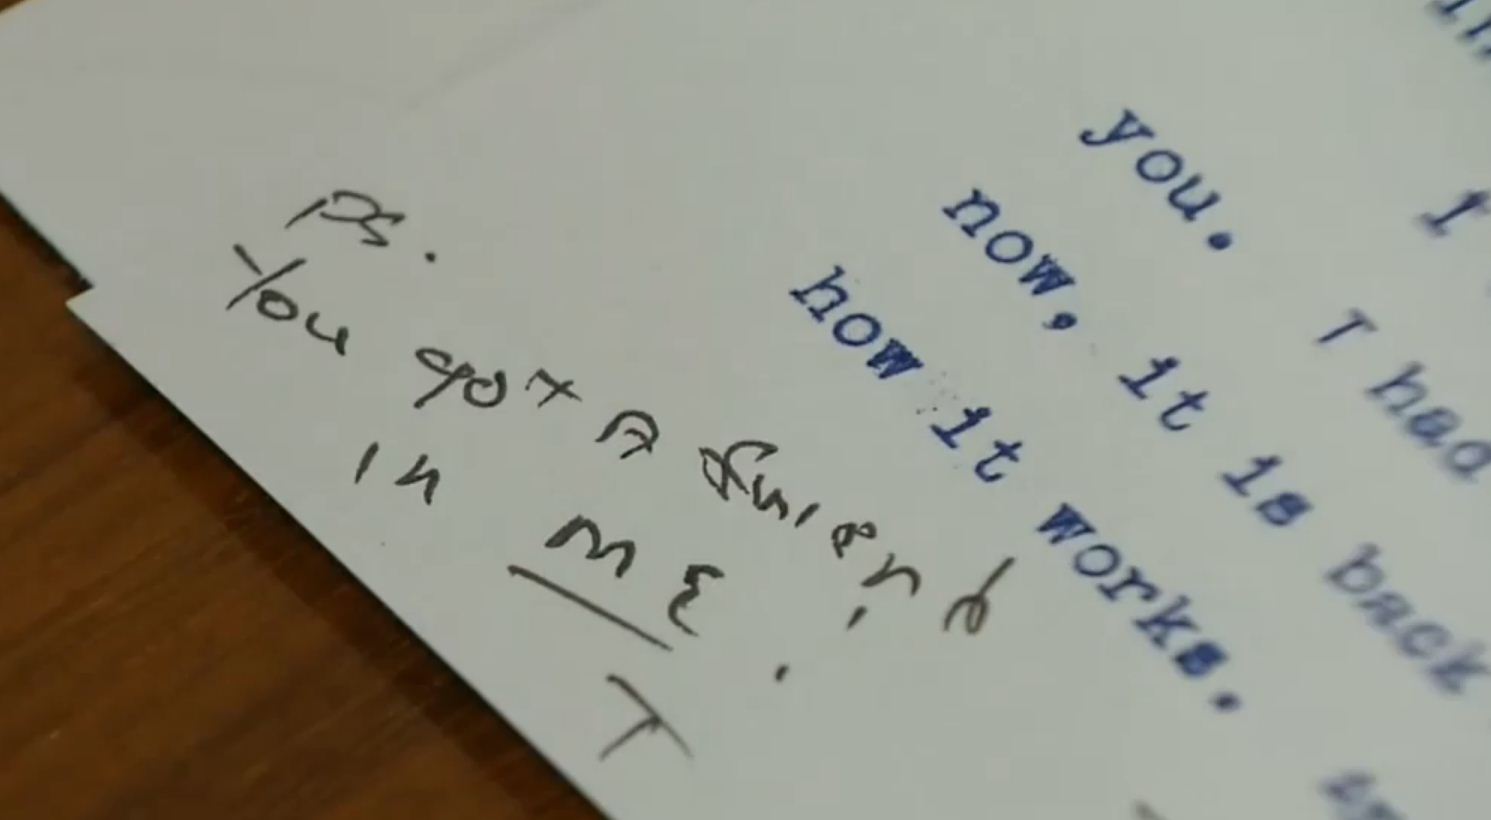 I
you. I had
now, it is back
how it works.
PS.
You got A friend
in ME.
T